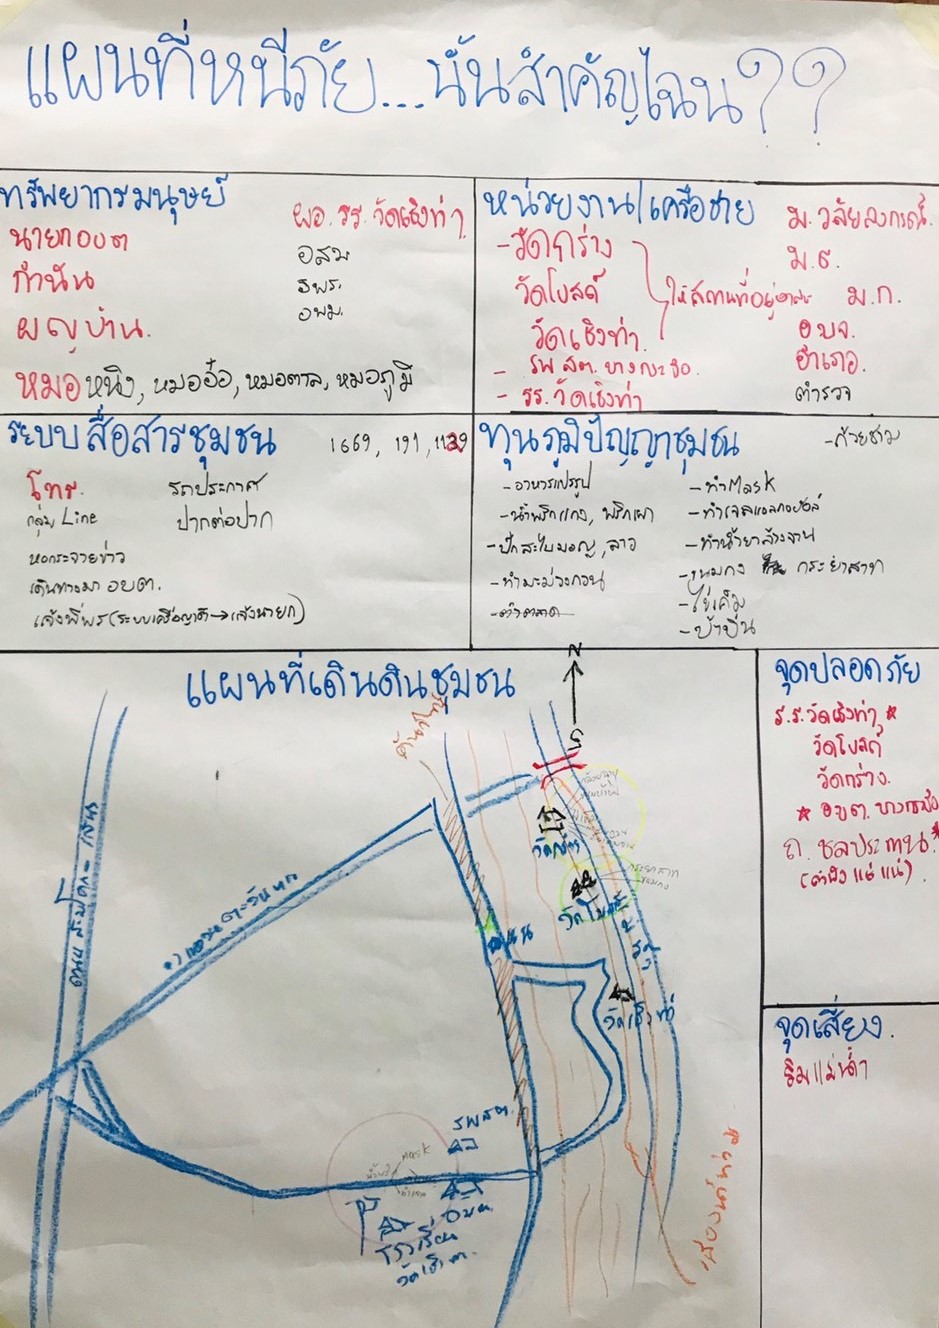 แผนที่หนีภัย...นั้นสำคัญไฉน??
ทรัพยากรมนุษย์
ผอ. รร. วัดเชิงท่า
นายกอบต
อสม
กำนัน
รพร.
อพม.
ผญบ้าน.
หมอหนิง, หมออ้อ, หมอตาล, หมอภูมิ
หน่วยงาน/เครือข่าย
ม.วลัยลงกรณ์.
- วัดกร่าง
ม.ธ.
วัดโบสถ์
ให้สถานที่อยู่อาศัย
ม.ก.
วัดเชิงท่า.
อบจ.
- รพ สต. บางกะชือ
อำเภอ.
- รร. วัดเชิงท่า
ตำรวจ
ระบบสื่อสารชุมชน
1669, 191, 1129
โทร.
รถประกาศ
กลุ่ม Line
ปากต่อปาก
หอกระจายข่าว
เดินทางมา อบต.
แจ้งพี่พร(ระบบเครือญาติ→แจ้งนายก)
ทุนภูมิปัญญาชุมชน
- กล้วยฉาบ
- อาหารแปรรูป
- ทำMask
- น้ำพริกแกง, พริกเผา
- ทำเจลแอลกอฮอล์
- ปักสไบมอญ, ลาว
- ทำน้ำยาล้างจาน
- ทำมะม่วงกวน
- ขนมกง กระยาสาท
- ไข่เค็ม
- บ้าบิ่น
แผนที่เดินดินชุมชน
N
S
คันกั้นน้ำ
วัดกร่าง
กระยาสาท
ขนมกง
วัดโบสถ์
ถนน
วัดเชิงท่า
รพสต.
Mask
อบต.
โรงเรียน
วัดเชิงท่า.
เสี่ยงน้ำท่วม
จุดปลอดภัย
ร.ร.วัดเชิงท่า *
วัดโบสถ์
วัดกร่าง.
* อบต. บางกะชือ
ถ. ชลประทาน.*
(คำผิง แต่ แน่)
จุดเสี่ยง.
ริมแม่น้ำ